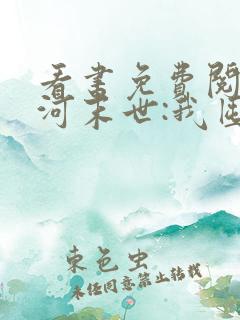 看書免費閱
河末世:我
東色虫
未經同意禁止轉載